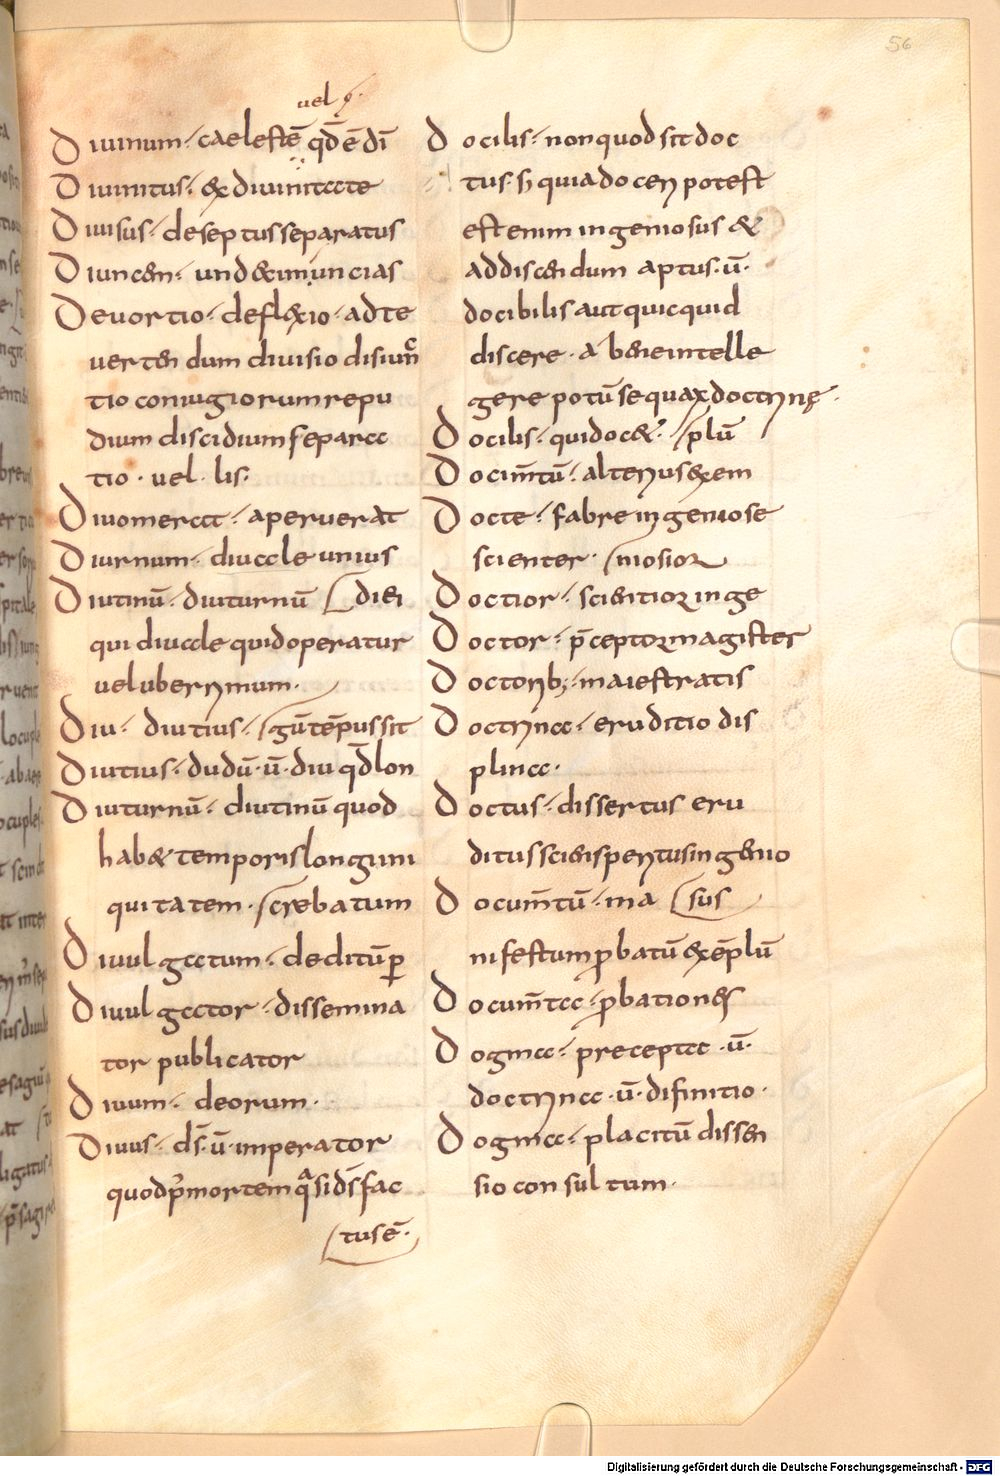 56
vel
Diuinum· caelestē qd̄ ē dī
Diuinitus· ex diuinitate
Diuisus· deseptus separatus
Diuncen· und& inuncias
Deuortio· deflexio· ad te
uertendum diuisio disiunc
tio coniugiorum repu
dium discidium separa
tio· uel· lis·
Diuomerat· aperuerat
Diurnum· diuale unius
Diutinū· diuturnū diei
qui diuale quid operatur
uel uberrimum·
Diu· diutius· gū tēpus sit
Diutius· dudū· ū· diu qd̄ lon
Diuturnū· diutinū quod
hab& temporis longin
quitatem· crebatum
Diuulgatum· deditū per
Diuulgator· dissemina
tor publicator
Diuum· deorum·
Diuus· ds̄· ū· imperator
quod p̄ mortem quasi ds̄ fac
tus ē·
Docilis· non quod sit doc
tus· s; quia doceri potest
est enim ingeniosus &
addiscendum aptus· ū·
docibilis aut quicquid
discere· a bene intelle
gere potū sequax doctrinę·
Docilis· qui doc&· plū
Docimtū· alterius exem
Docte· fabre ingeniose
scienter· niosior
Doctior· scientior inge
Doctor· p̄ceptor magister
Doctorib;· maiestratis
Doctrina· eruditio dis
plina·
Doctus· dissertus eru
ditus sciens peritus ingenio
Documtū· ma sus
nifestum probatū exēplū
Documta· probationes
Dogma· precepta· ū·
doctrina· ū· difinitio·
Dogma· placitū dissen
sio consultum·
Digitalisierung gefördert durch die Deutsche Forschungsgemeinschaft - DFG